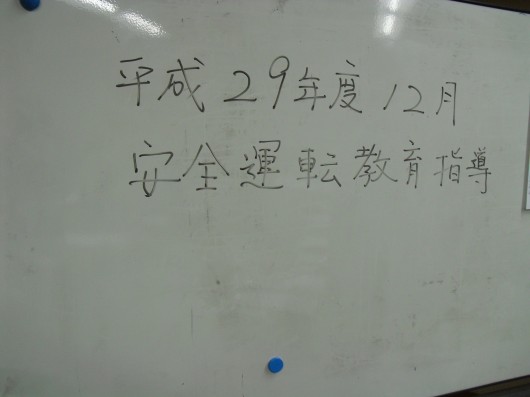 平成29年度 12月
安全運転教育指導